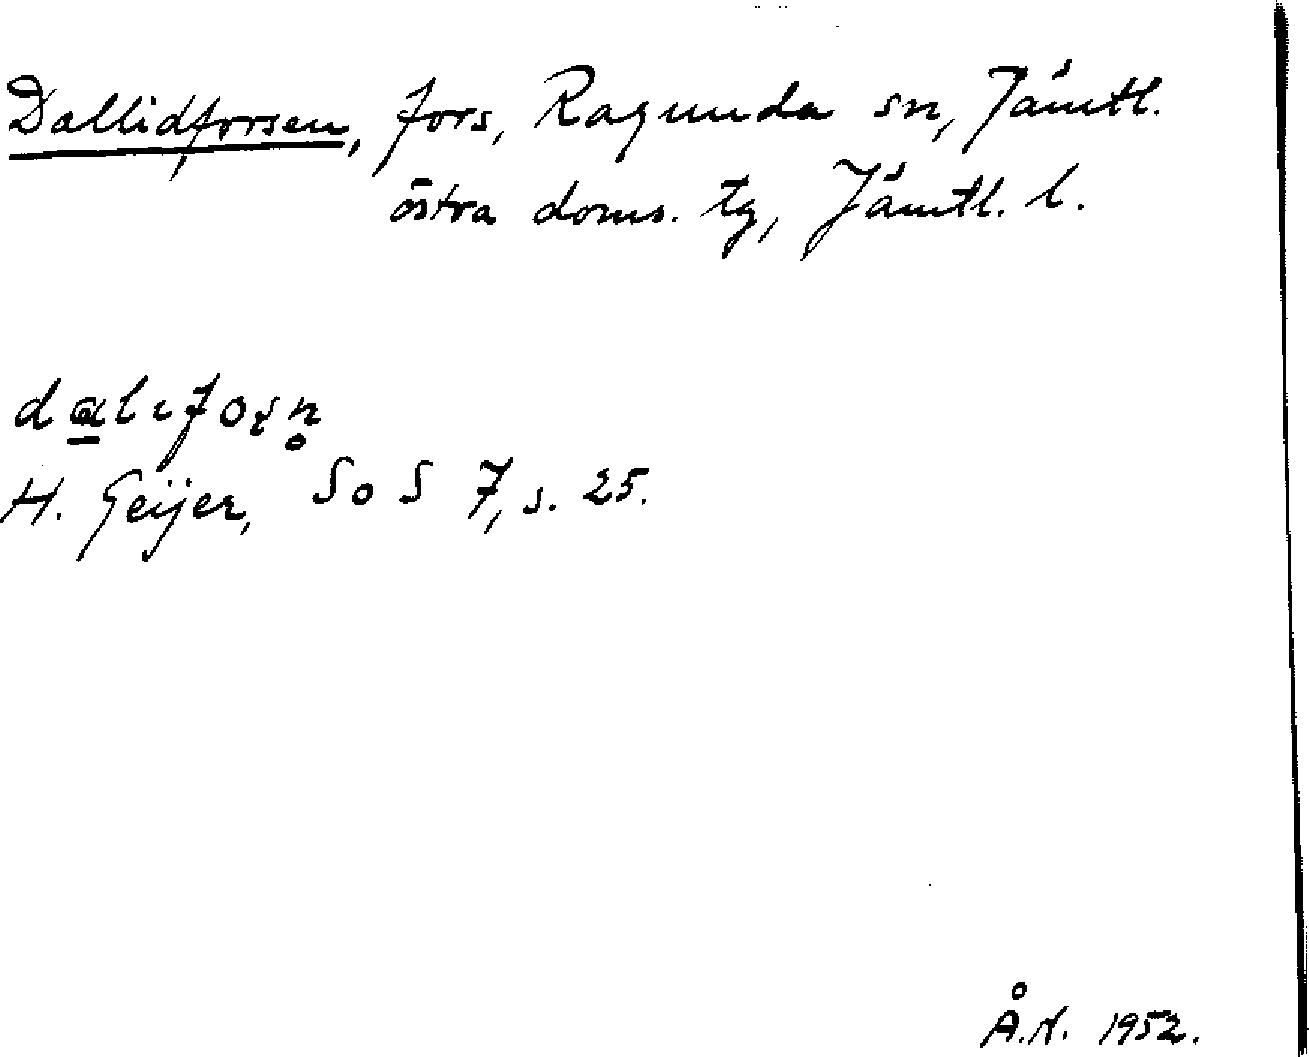 Dallidforsen, fors, Ragunda sn, Jämtl.
östra doms. tg, Jämtl. l.
dalıforsn̥
H. Geijer, SoS 7, s. 25.
Å.N. 1952.